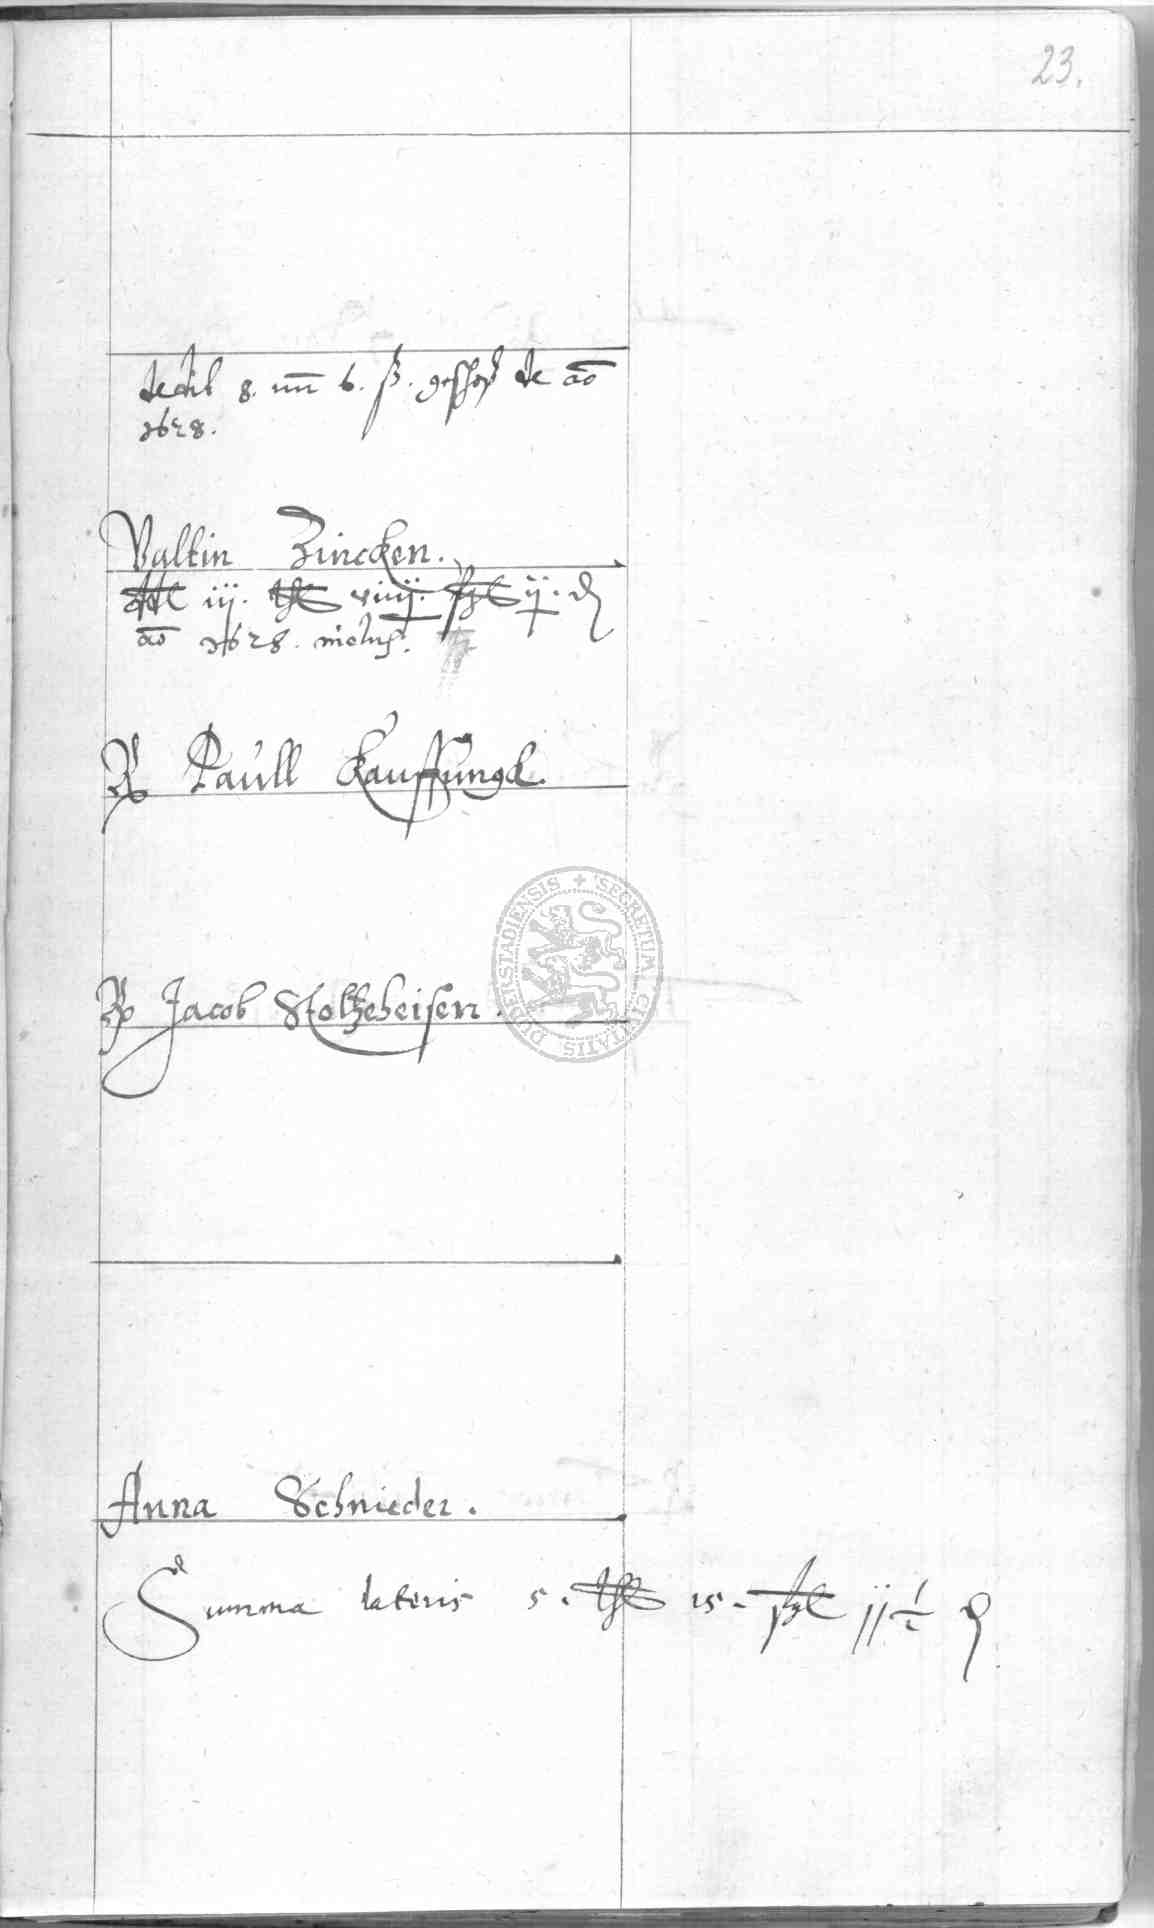 23.
dedit 8. mr̄ 6. ß. geschoß de ao
1628.
Valtin Zincken.
iij. thl viiij. ßgl ij. ₰
ao 1628.
Paull Kauffungk.
Jacob Stoltzeheisen.
SECRETUM CIVITATIS DUDERSTADIENSIS
Anna Schnieder.
Summa lateris 5. thl 15. ßgl jj ½ ₰